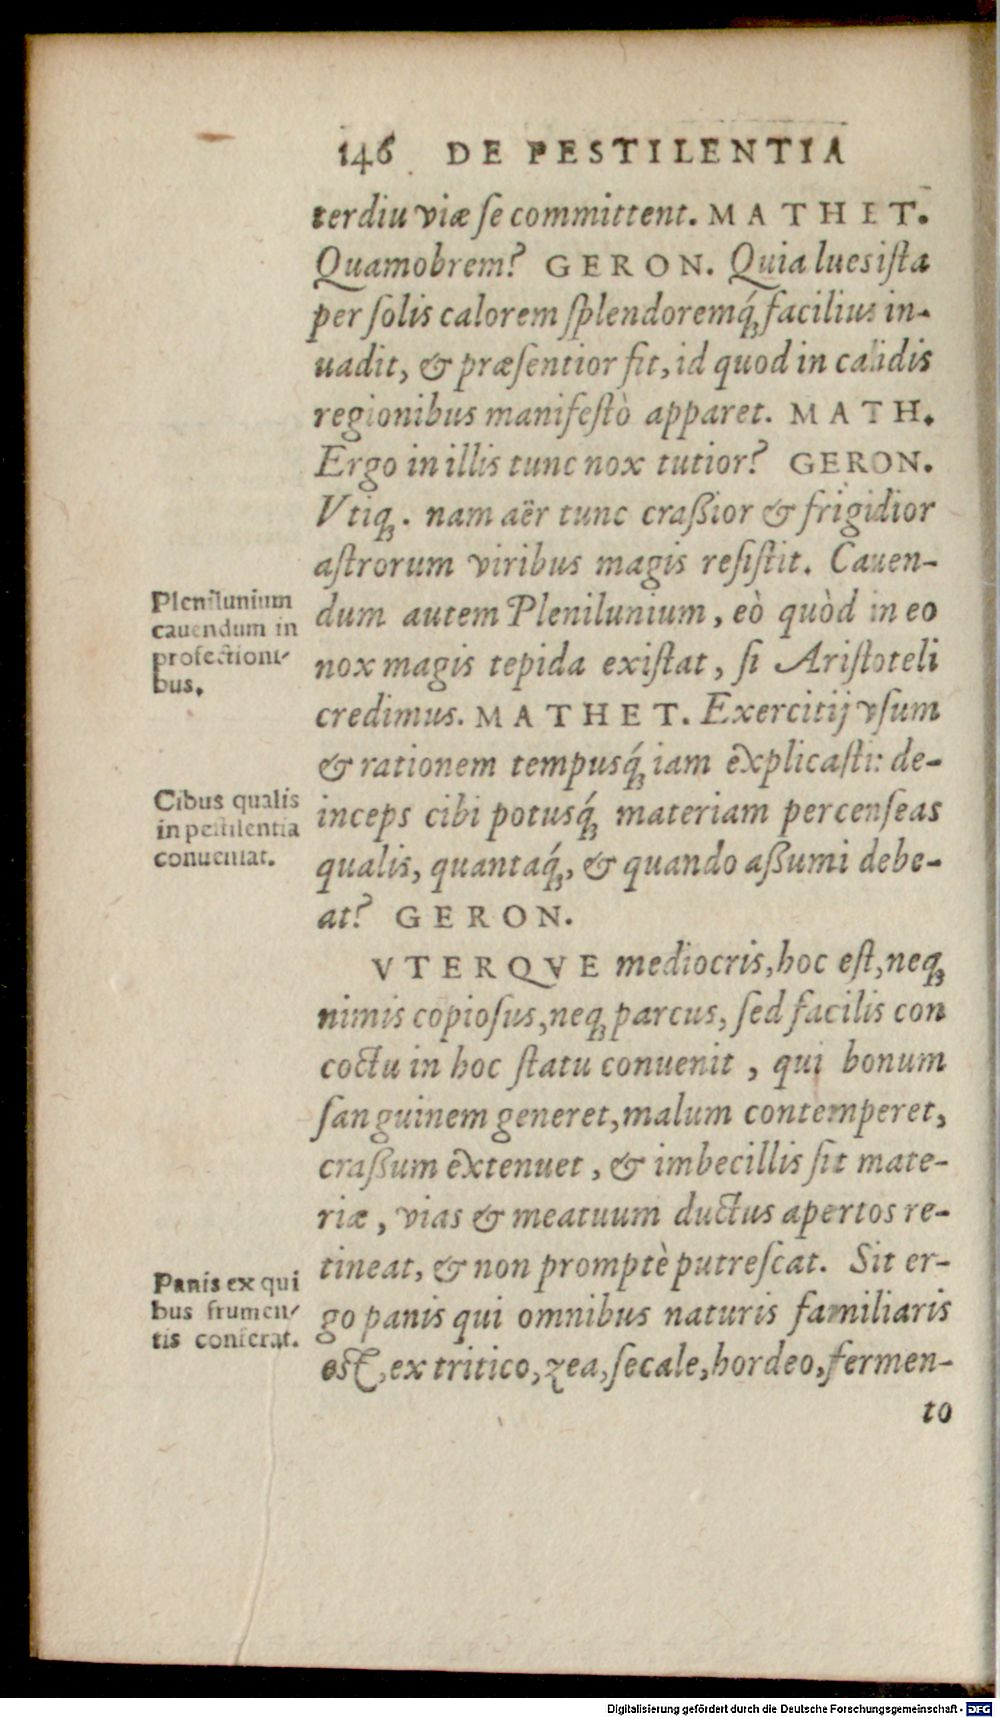 146 DE PESTILENTIA
terdiu viæ ſe committent. MATHET.
Quamobrem? GERON. Quia lues iſta
per ſolis calorem ſplendoremq́ꝫ facilius in-
uadit, & præſentior fit, id quod in calidis
regionibus manifeſtò apparet. MATH.
Ergo in illis tunc nox tutior? GERON.
Vtiqꝫ. nam aër tunc craßior & frigidior
aſtrorum viribus magis reſiſtit. Cauen-
dum autem Plenilunium, eò quòd in eo
nox magis tepida exiſtat, ſi Ariſtoteli
credimus. MATHET. Exercitij vſum
& rationem tempusq́ꝫ iam explicaſti: de-
inceps cibi potusq́ꝫ materiam percenſeas
qualis, quantaq́ꝫ, & quando aßumi debe-
at? GERON.
VTERQVE mediocris, hoc eſt, neqꝫ
nimis copioſus, neqꝫ parcus, ſed facilis con
coctu in hoc ſtatu conuenit, qui bonum
ſanguinem generet, malum contemperet,
craßum extenuet, & imbecillis ſit mate-
riæ, vias & meatuum ductus apertos re-
tineat, & non promptè putreſcat. Sit er-
go panis qui omnibus naturis familiaris
est, ex tritico, zea, ſecale, hordeo, fermen-
to
Plenilunium
cauendum in
profectioni-
bus.
Cibus qualis
in peſtilentia
conueniat.
Panis ex qui
bus frumen-
tis conferat.
Digitalisierung gefördert durch die Deutsche Forschungsgemeinschaft - DFG